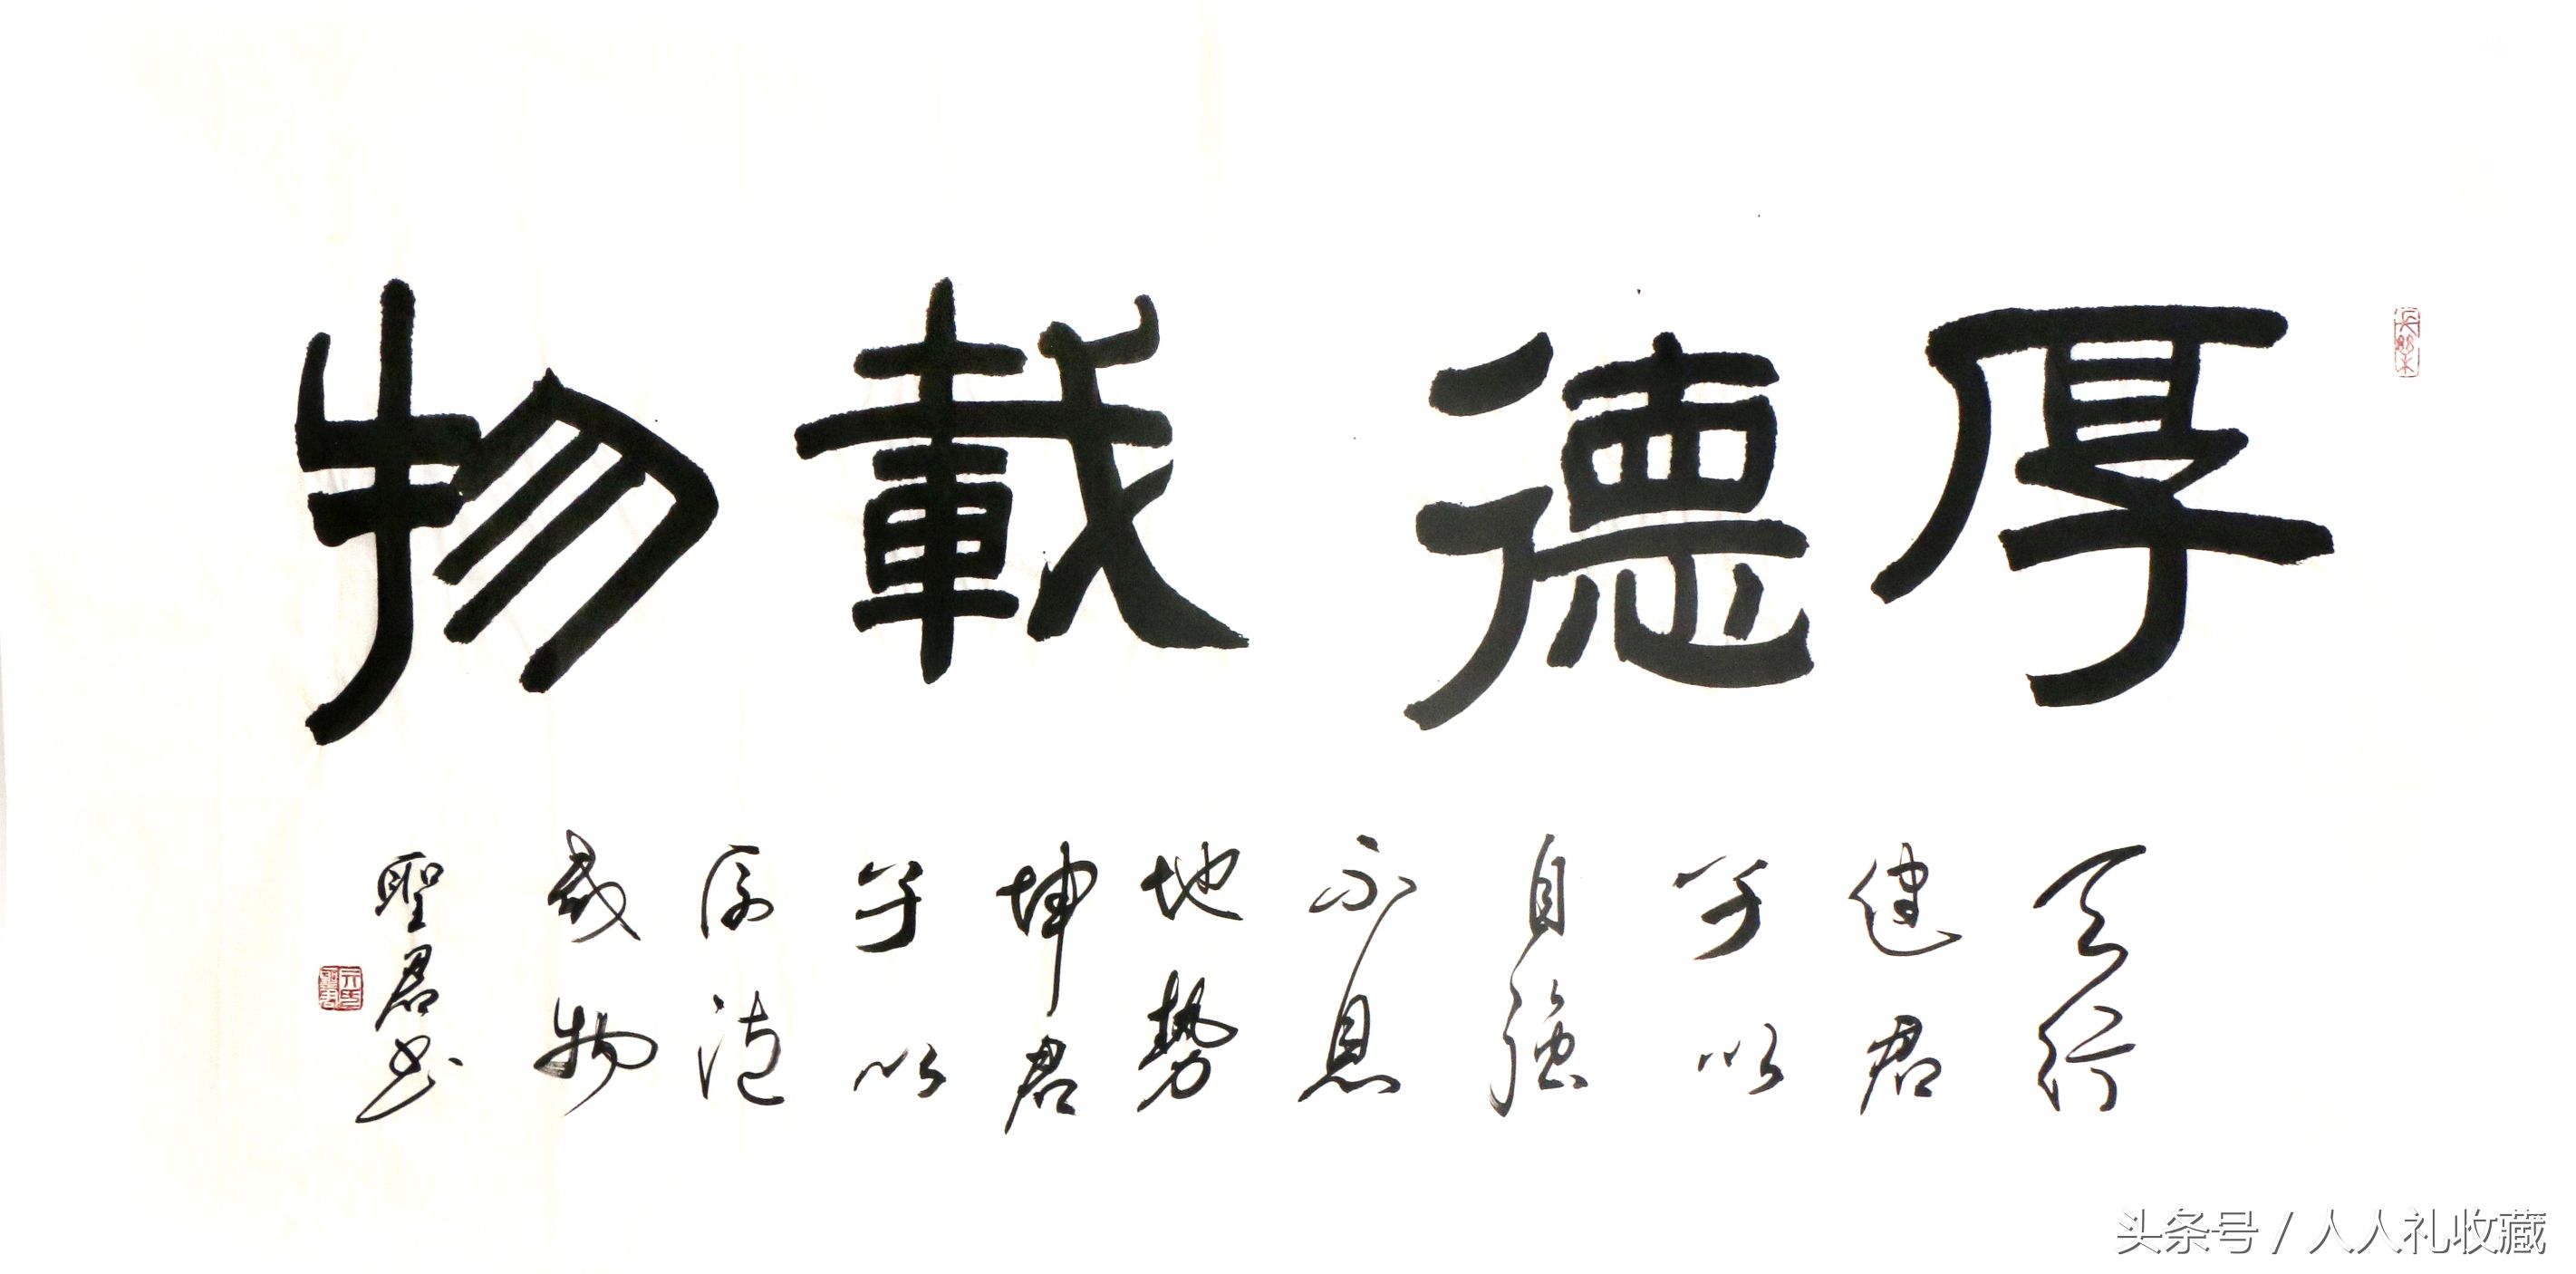 厚德載物
天行
健君
子以
自強
不息
地勢
坤君
子以
厚德
載物
聖君书
头条号 / 人人礼收藏